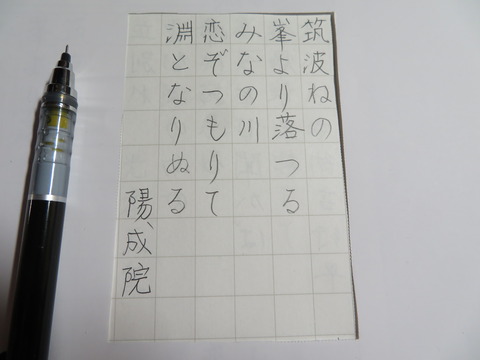 筑波ねの
峯より落つる
みなの川
恋ぞつもりて
淵となりぬる
陽成院